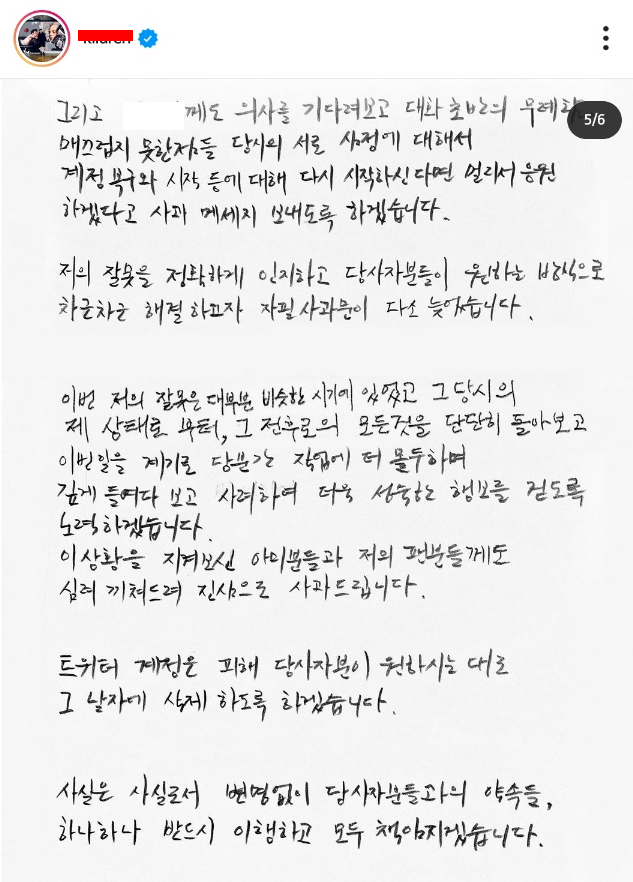 5/6
그리고 께도 의사를 기다려보고 대화 초반의 무례하
매끄럽지 못한점들 당시의 서로 심정에 대해서
계정 복구와 시작 등에 대해 다시 시작하신다면 멀리서 응원
하겠다고 사과 메세지 보내도록 하겠습니다.
저의 잘못을 정확하게 인지하고 당사자분들이 원하는 방식으로
차근차근 해결하고자 자필사과문이 다소 늦었습니다.
이번 저의 잘못은 대부분 비슷한 시기에 있었고 그당시의
제 상태로 부터, 그 전후로의 모든것을 단단히 돌아보고
이번일을 계기로 당분간 작업에 더 몰두하며
깊게 들여다 보고 사려하여 더욱 성숙한 행보를 걷도록
노력하겠습니다.
이상황을 지켜보신 아미분들과 저의 팬분들께도
심려 끼쳐드려 진심으로 사과드립니다.
트위터 계정은 피해 당사자분이 원하시는 대로
그 날자에 삭제 하도록 하겠습니다.
사실은 사실로서 변명없이 당사자분들과의 약속들,
하나하나 반드시 이행하고 모두 책임지겠습니다.